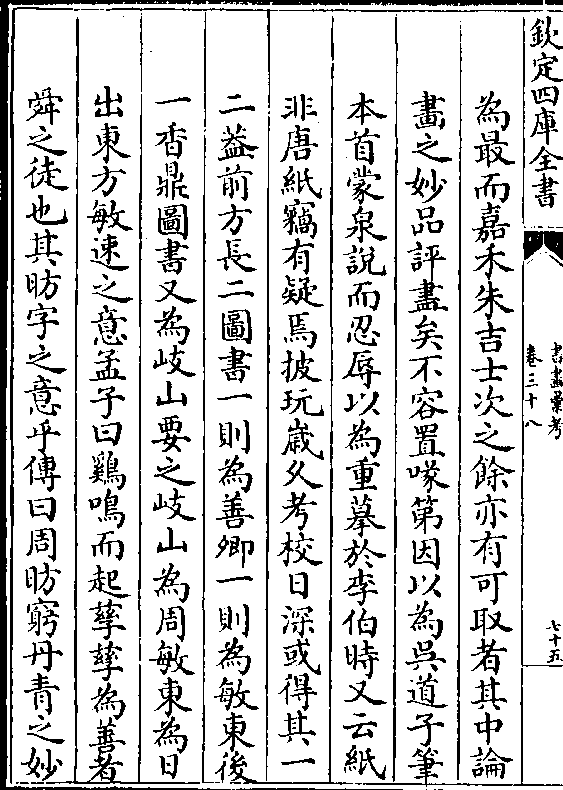 欽定四庫全書
書畫彙考
卷三十八
七十五
為最而嘉禾朱吉士次之餘亦有可取者其中論
畫之妙品評盡矣不容置喙第因以為吳道子筆
本首蒙泉說而忍辱以為重摹於李伯時又云紙
非唐紙竊有疑焉披玩歲久考校日深或得其一
二葢前方長二圖書一則為善卿一則為敏東後
一香鼎圖書又為岐山要之岐山為周敏東為日
出東方敏速之意孟子曰鷄鳴而起孳孳為善者
舜之徒也其昉字之意乎傳曰周昉窮丹青之妙